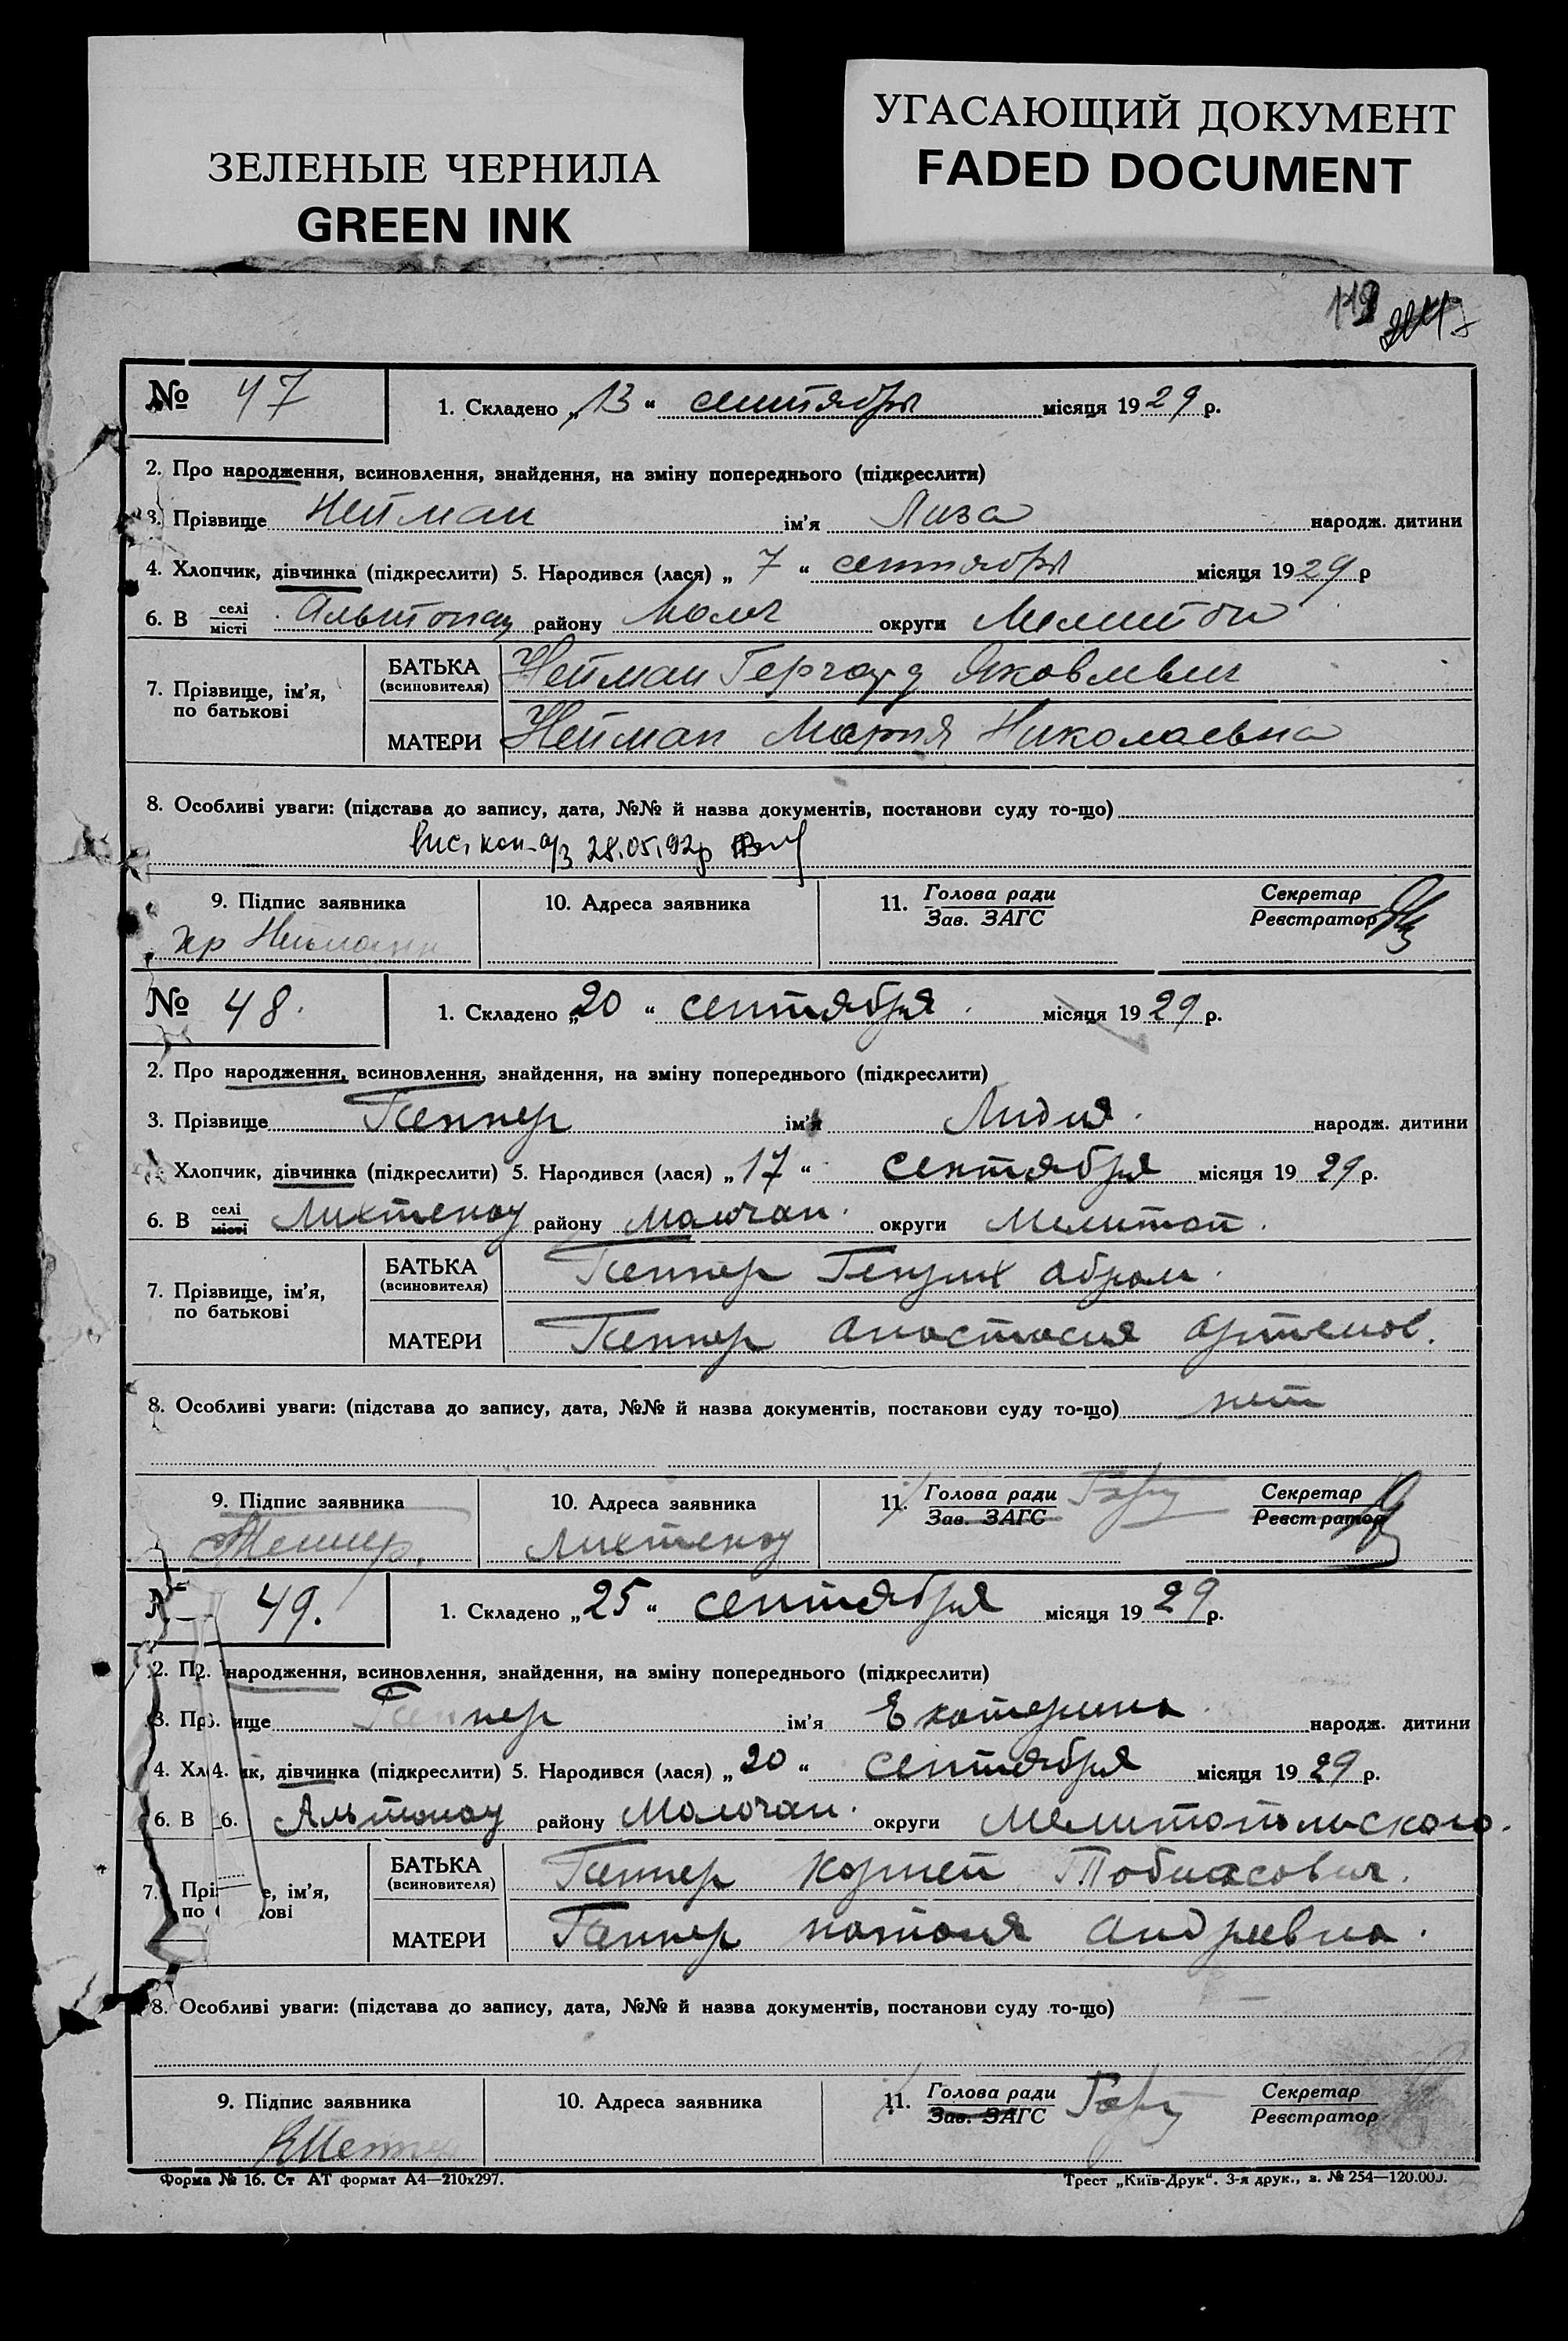 ЗЕЛЕНЫЕ ЧЕРНИЛА
GREEN INK
УГАСАЮЩИЙ ДОКУМЕНТ
FADED DOCUMENT
№ 47
1. Складено „13“ сентября місяця 1929 р.
2. Про народження, всиновлення, знайдення, на зміну попереднього (підкреслити)
3. Прізвище Нейман ім'я Лиза народж. дитини
4. Хлопчик, дівчинка (підкреслити) 5. Народився (лася) „7“ сентября місяця 1929 р
6. В селі місті Альтонау району Молоч округи Мелитоп
7. Прізвище, ім'я, по батькові
БАТЬКА (всиновителя) Нейман Гергард Яковлевич
МАТЕРИ Нейман Мария Николаевна
8. Особливі уваги: (підстава до запису, дата, №№ й назва документів, постанови суду то-що)
28.05.92р
9. Підпис заявника
10. Адреса заявника
11. Голова ради Зав. ЗАГС
Секретар Реєстратор
№ 48.
1. Складено „20“ сентября. місяця 1929 р.
2. Про народження, всиновлення, знайдення, на зміну попереднього (підкреслити)
3. Прізвище Геппер ім'я Лидия. народж. дитини
Хлопчик, дівчинка (підкреслити) 5. Народився (лася) „17“ сентября місяця 1929 р.
6. В селі місті Лихтенау району Молочан. округи Мелитоп.
7. Прізвище, ім'я, по батькові
БАТЬКА (всиновителя) Геппер Генрих Абрам.
МАТЕРИ Геппер Анастасия Артемов.
8. Особливі уваги: (підстава до запису, дата, №№ й назва документів, постанови суду то-що) нет
9. Підпис заявника
10. Адреса заявника
Лихтенау
11. Голова ради Зав. ЗАГС
Секретар Реєстратор
49.
1. Складено „25“ сентября місяця 1929 р.
2. народження, всиновлення, знайдення, на зміну попереднього (підкреслити)
3. Геппер ім'я Екатерина народж. дитини
4. дівчинка (підкреслити) 5. Народився (лася) „20“ сентября місяця 1929 р.
6. В Альтонау району Молочан. округи Мелитопольского.
7. ім'я,
БАТЬКА (всиновителя) Геппер Корней Тобиасович.
МАТЕРИ Геппер Наталя Андреевна.
8. Особливі уваги: (підстава до запису, дата, №№ й назва документів, постанови суду то-що)
9. Підпис заявника
10. Адреса заявника
11. Голова ради Зав. ЗАГС
Секретар Реєстратор
Форма № 16. Ст АТ формат А4—210х297.
Трест „Київ-Друк“. 3-я друк., з. № 254—120.000.